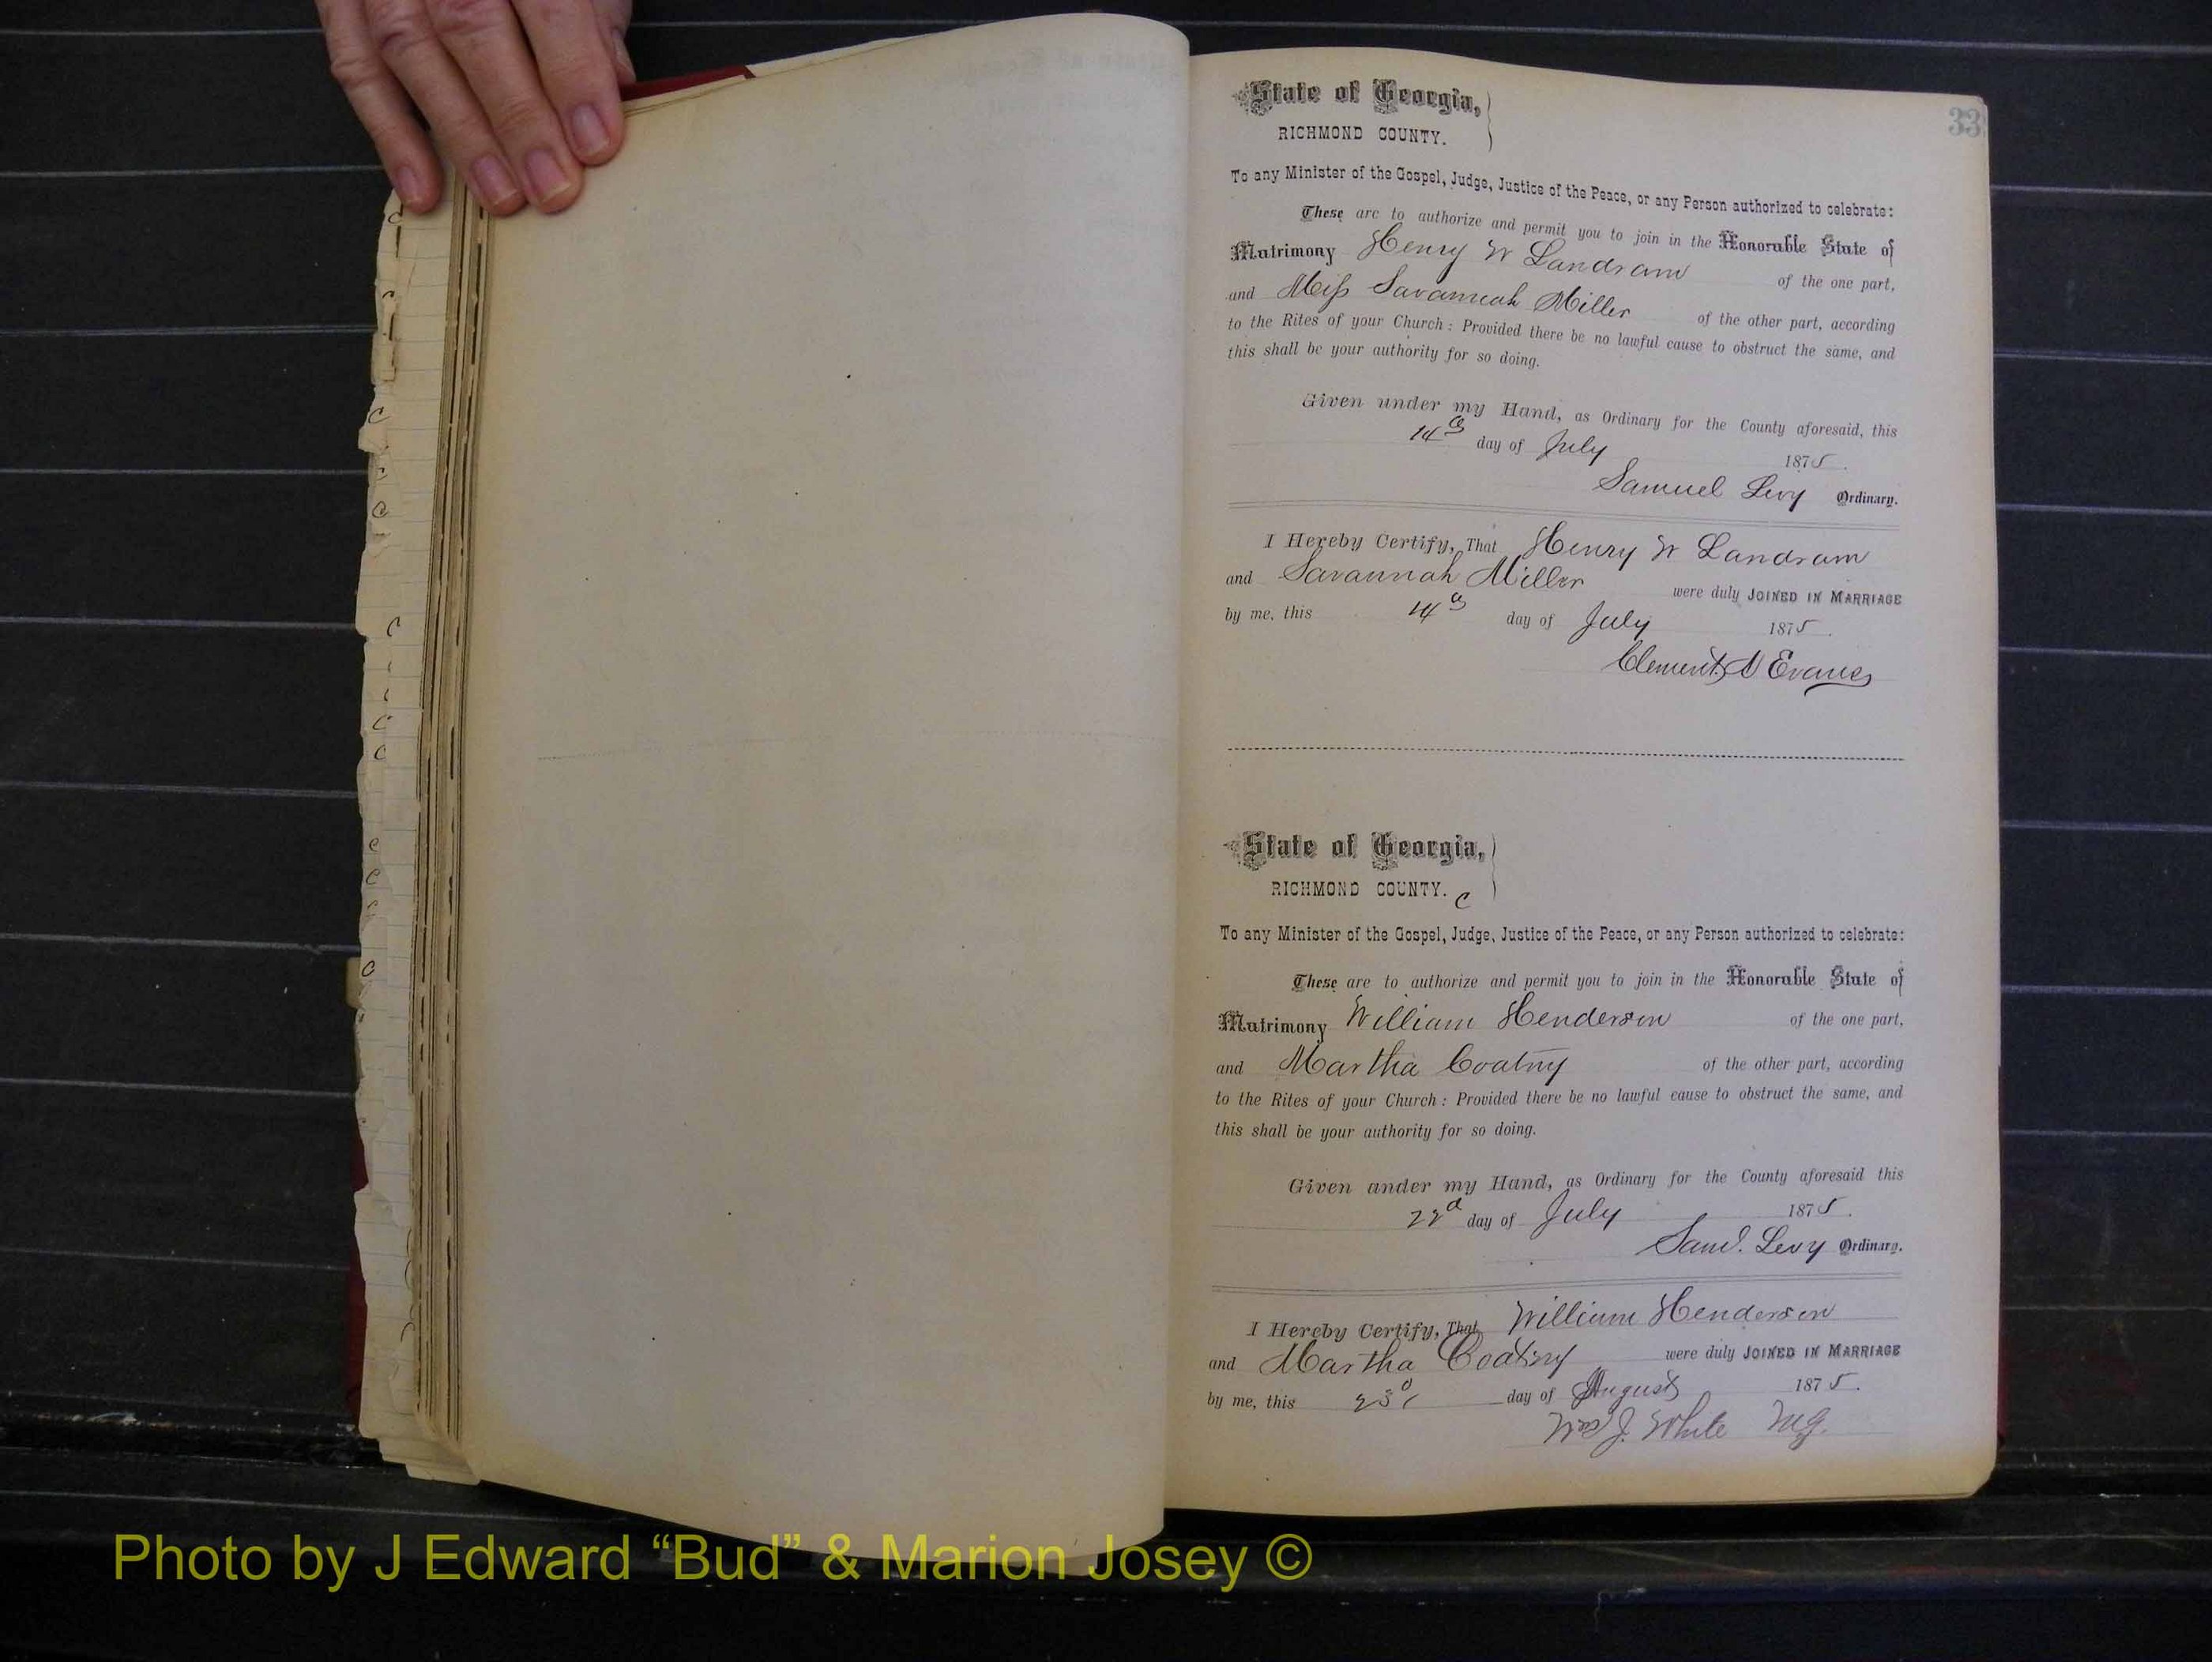 33
State of Georgia,
RICHMOND COUNTY.
To any Minister of the Gospel, Judge, Justice of the Peace, or any Person authorized to celebrate:
These are to authorize and permit you to join in the Honorable State of
Matrimony Henry W Landram of the one part,
and Miss Savannah Miller of the other part, according
to the Rites of your Church: Provided there be no lawful cause to obstruct the same, and
this shall be your authority for so doing.
Given under my Hand, as Ordinary for the County aforesaid, this
14th day of July 1875.
Samuel Levy Ordinary.
I Hereby Certify, That Henry W Landram
and Savannah Miller were duly JOINED IN MARRIAGE
by me, this 14th day of July 1875.
Clement A Evans
State of Georgia,
RICHMOND COUNTY. C
To any Minister of the Gospel, Judge, Justice of the Peace, or any Person authorized to celebrate:
These are to authorize and permit you to join in the Honorable State of
Matrimony William Henderson of the one part,
and Martha of the other part, according
to the Rites of your Church: Provided there be no lawful cause to obstruct the same, and
this shall be your authority for so doing.
Given under my Hand, as Ordinary for the County aforesaid this
22d day of July 1875.
Saml. Levy Ordinary.
I Hereby Certify, That William Henderson
and Martha were duly JOINED IN MARRIAGE
by me, this 23d day of August 1875.
Wm J. White M.G.
Photo by J Edward “Bud” & Marion Josey ©